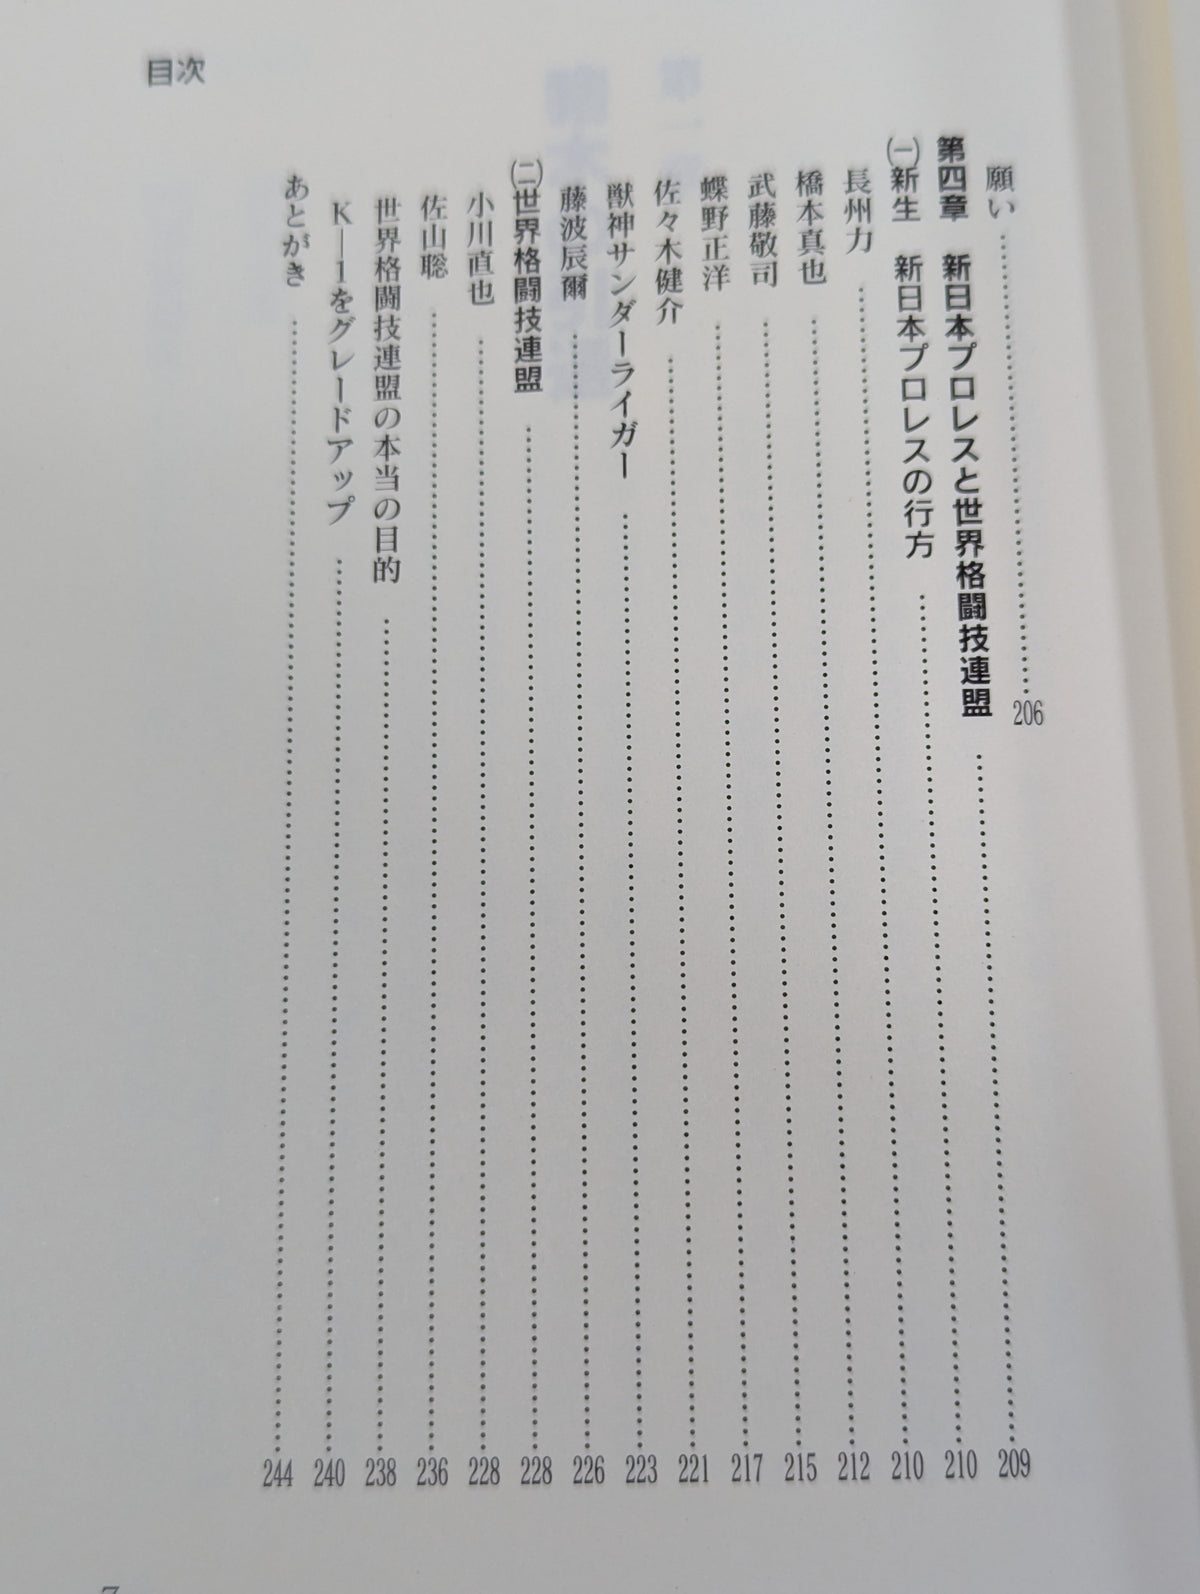 目次
願い……206
第四章　新日本プロレスと世界格闘技連盟……209
㈠新生　新日本プロレスの行方……210
長州力……210
橋本真也……212
武藤敬司……215
蝶野正洋……217
佐々木健介……221
獣神サンダーライガー……223
藤波辰爾……226
㈡世界格闘技連盟……228
小川直也……228
佐山聡……236
世界格闘技連盟の本当の目的……238
K―1をグレードアップ……240
あとがき……244